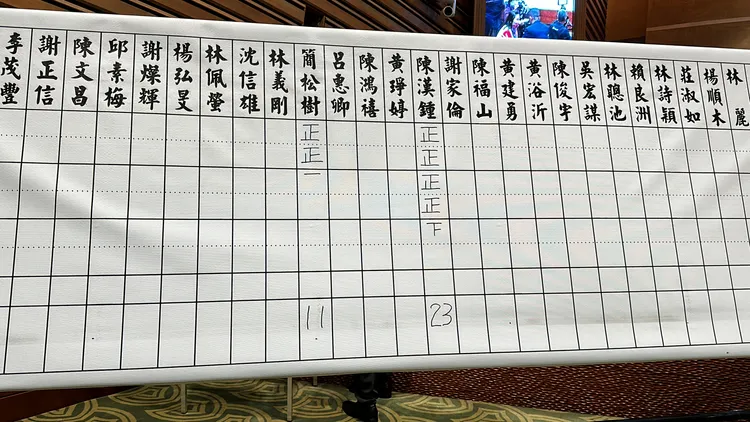 林麗
楊順木
莊淑如
林詩穎
賴良洲
林聰池
吳宏謀
陳俊宇
黃浴沂
黃建勇
陳福山
謝家倫
陳漢鍾
正正正正下
23
黃琤婷
陳鴻禧
呂惠卿
簡松樹
正正一
11
林義剛
沈信雄
林佩螢
楊弘旻
謝燦輝
邱素梅
陳文昌
謝正信
李茂豐